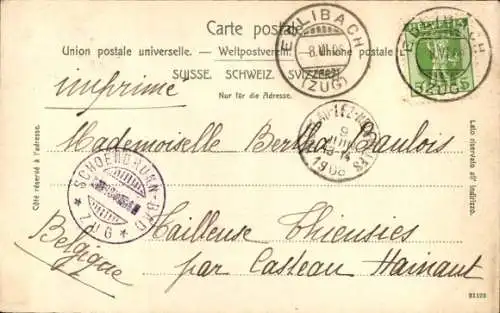 Carte postale.
Union postale universelle. — Weltpostverein. — Unione postale
SUISSE. SCHWEIZ. SVIZZERA.
Nur für die Adresse.
EDLIBACH
8.VI.08
(ZUG)
EDLIBACH
(ZUG)
5 5
imprimé
Mademoiselle Bertha Baulois
9
JUIN
13-14
1908
SCHOENBRUNN-BAD
ZUG
Côté réservé à l'adresse.
Lato riservato all' indirizzo.
Tailleuse Thieusies
Belgique
par Casteau Hainaut